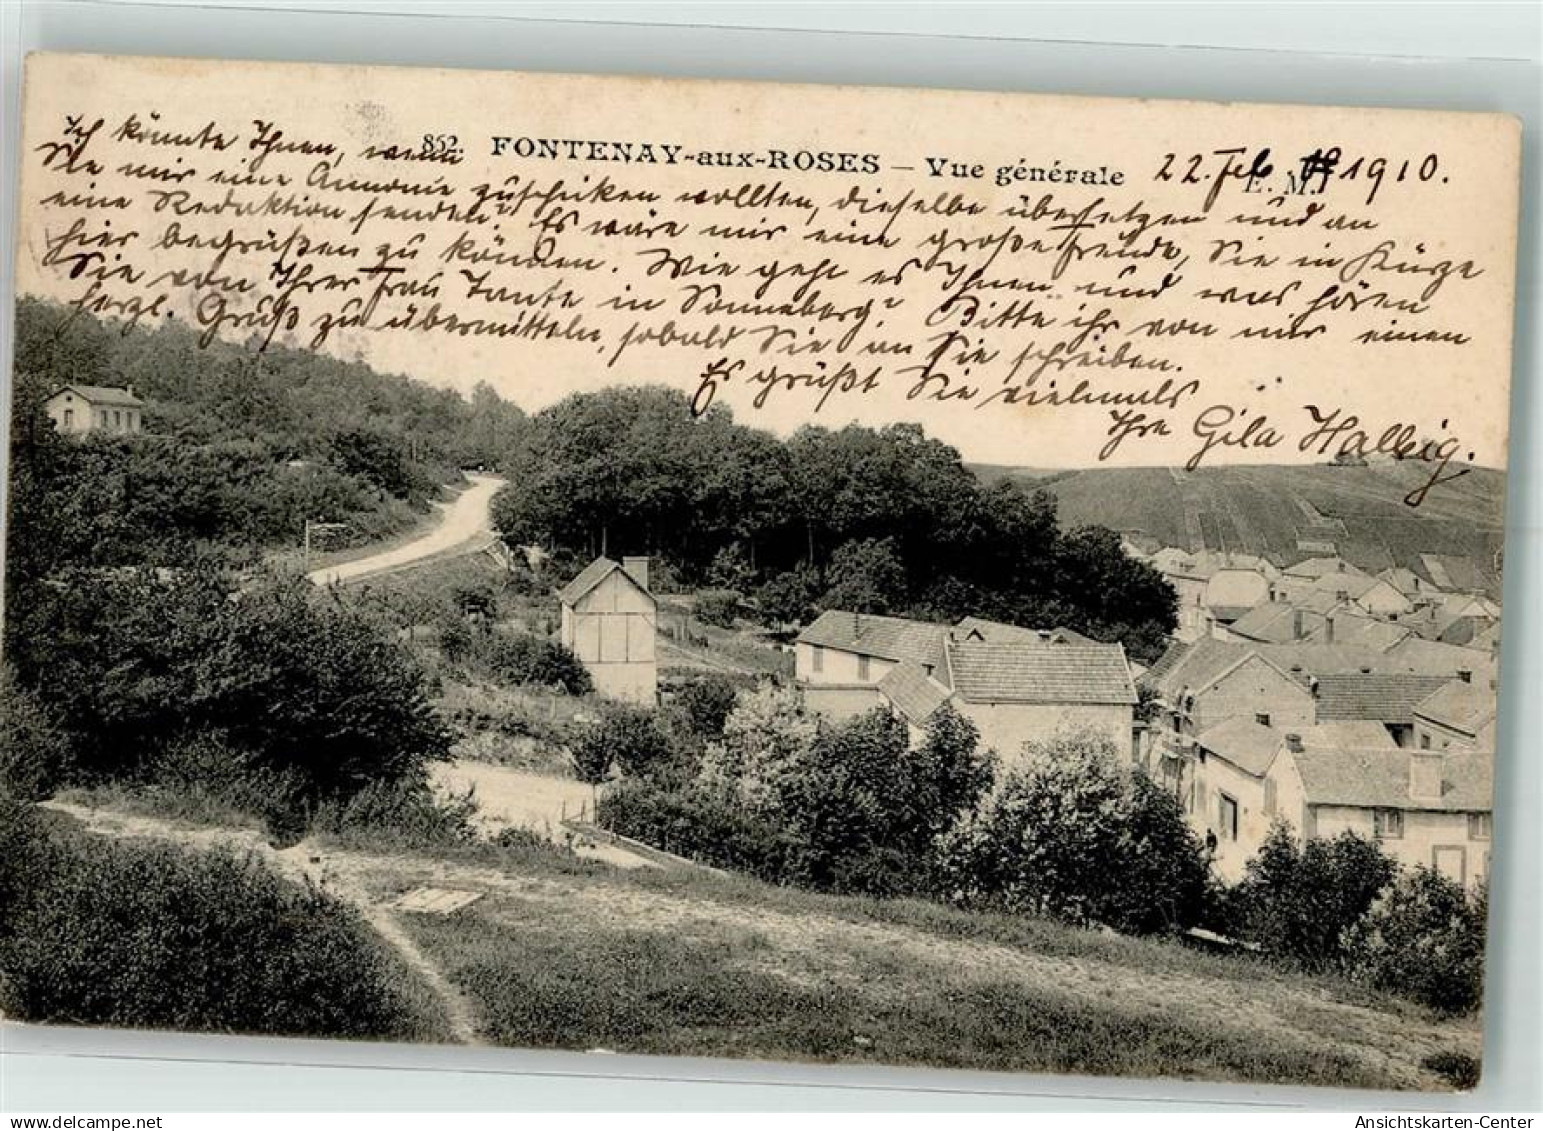 862. FONTENAY-aux-ROSES — Vue générale
E. M.
22. Feb 1910.
Ich könnte Ihnen, wenn
Sie mir eine Annonce zuschicken wollten, dieselbe übersetzen und an
eine Redaktion senden. Es wäre mir eine große Freude, Sie in Kürze
hier begrüßen zu können. Wie geht es Ihnen und was hören
Sie von Ihrer Frau Tante in Sonneberg? Bitte ihr von mir einen
herzl. Gruß zu übermitteln, sobald Sie an Sie schreiben.
Es grüßt Sie vielmals
Ihre Gila Halbig.
Ansichtskarten-Center